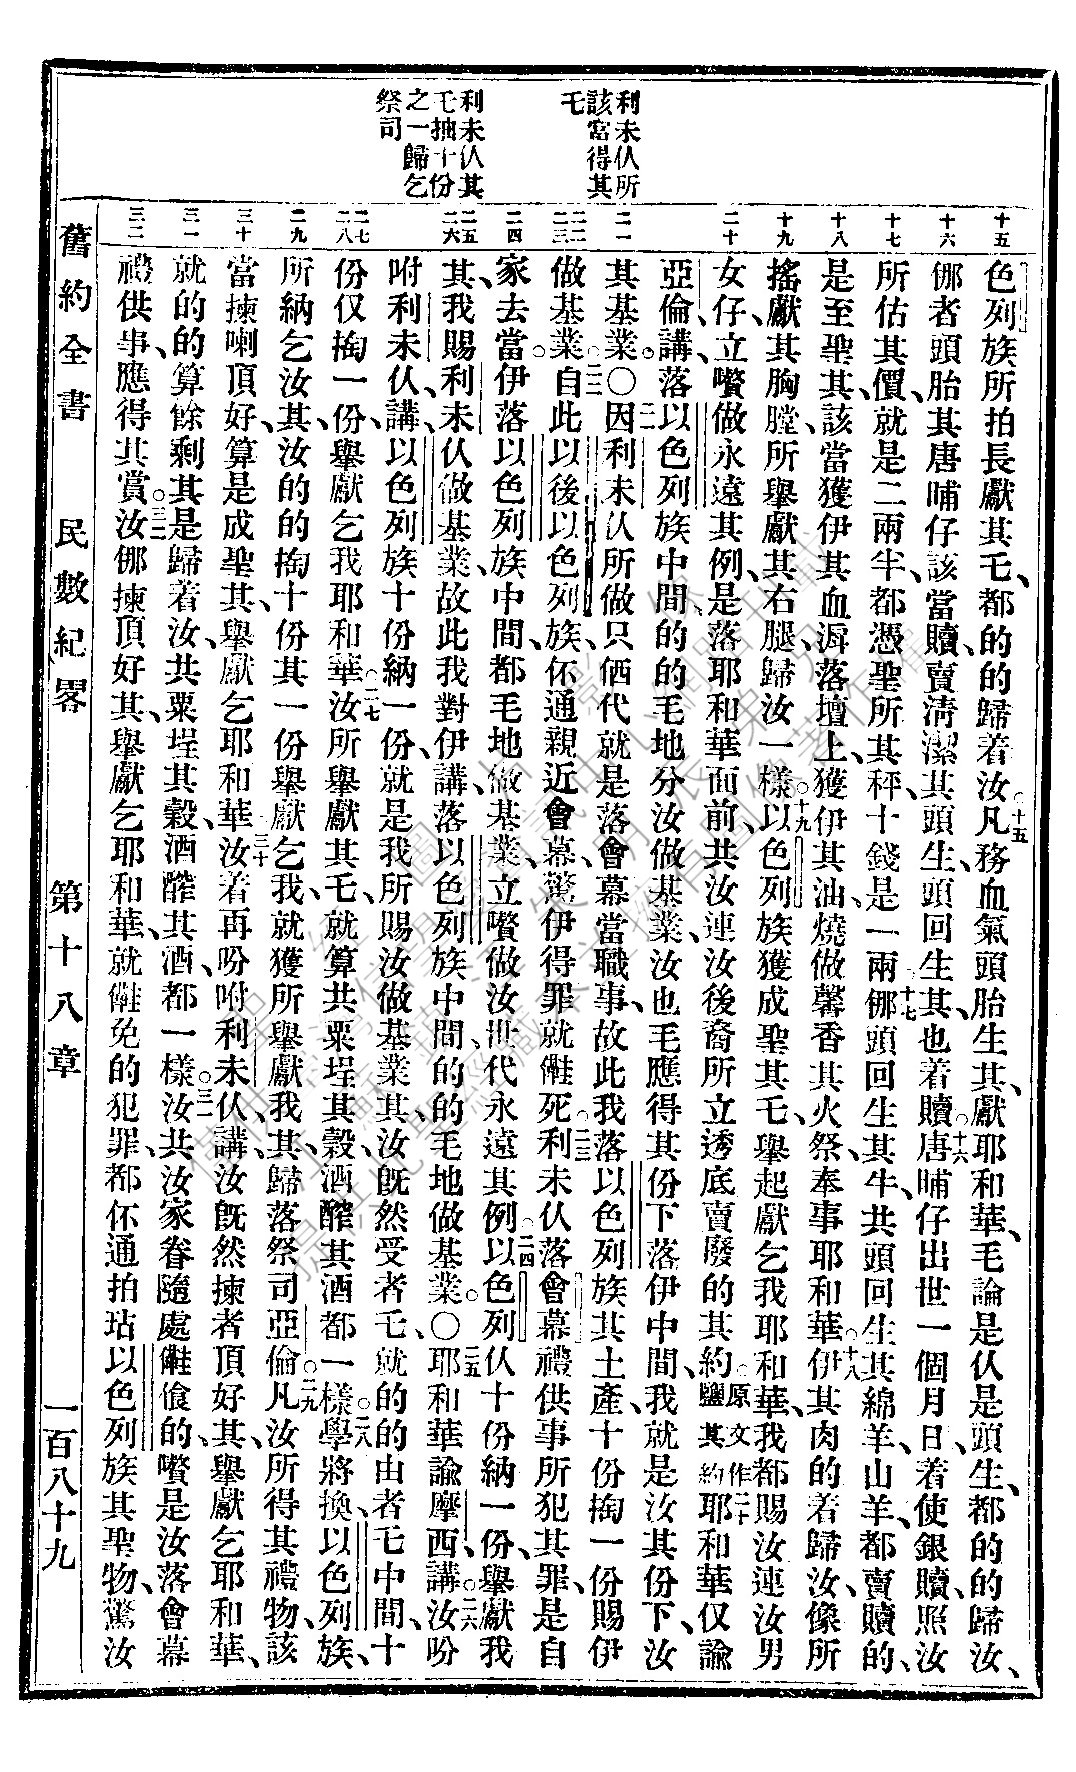 利未仈所
該當得其
乇
利未仈其
乇抽十份
之一歸乞
祭司
十五
十六
十七
十八
十九
二十
二一
二二
二三
二四
二五
二六
二七
二八
二九
三十
三一
三二
色列族所拍長獻其乇、都的的歸着汝。十五凡務血氣頭胎生其、獻耶和華、毛論是仈是頭生、都的的歸汝、
㑚者頭胎其唐晡仔該當贖、賣淸潔其頭生頭回生其也着贖。十六唐晡仔出世一個月日、着使銀贖、照汝
所估其價、就是二兩半、都憑聖所其秤、十錢是一兩。十七㑚頭回生其牛、共頭回生其綿羊、山羊、都賣贖的、
是至聖其、該當獲伊其血潳落壇上、獲伊其油燒做馨香其火祭、奉事耶和華。十八伊其肉的着歸汝、像所
搖獻其胸膛、所舉獻其右腿、歸汝一樣。十九以色列族獲成聖其乇、舉起獻乞我耶和華、我都賜汝連汝男
女仔、立嚽做永遠其例、是落耶和華面前、共汝連汝後裔所立透底賣廢的其約。原文作鹽其約二十耶和華仅諭
亞倫講、落以色列族中間、的的毛地分汝做基業、汝也毛應得其份下、落伊中間、我就是汝其份下、汝
其基業。〇二一因利未仈所做只㑚代、就是落會幕當職事、故此我落以色列族其土產、十份掏一份賜伊
做基業。二二自此以後、以色列族、伓通親近會幕、驚伊得罪就㑲死。二三利未仈落會幕禮供事、所犯其罪、是自
家去當、伊落以色列族中間、都毛地做基業、立嚽做汝世代永遠其例。二四以色列仈十份納一份、舉獻我
其、我賜利未仈做基業、故此我對伊講、落以色列族中間、的的毛地做基業。〇二五耶和華諭摩西講。二六汝吩
咐利未仈講、以色列族十份納一份、就是我所賜汝做基業其、汝旣然受者乇、就的的由者乇中間、十
份仅掏一份、舉獻乞我耶和華。二七汝所舉獻其乇、就算共粟埕其穀、酒醡其酒都一樣。二八學將換以色列族、
所納乞汝其、汝的的掏十份其一份舉獻乞我、就獲所舉獻我其、歸落祭司亞倫。二九凡汝所得其禮物、該
當揀喇頂好、算是成聖其、舉獻乞耶和華。三十汝着再吩咐利未仈講、汝旣然揀者頂好其、舉獻乞耶和華、
就的的算餘剩其是歸着汝、共粟埕其穀、酒醡其酒、都一樣。三一汝共汝家眷隨處㑲飡的、嚽是汝落會幕
禮供事、應得其賞。三二汝㑚揀頂好其、舉獻乞耶和華、就㑲免的犯罪、都伓通拍玷以色列族其聖物、驚汝
舊約全書　民數紀畧　第十八章　一百八十九